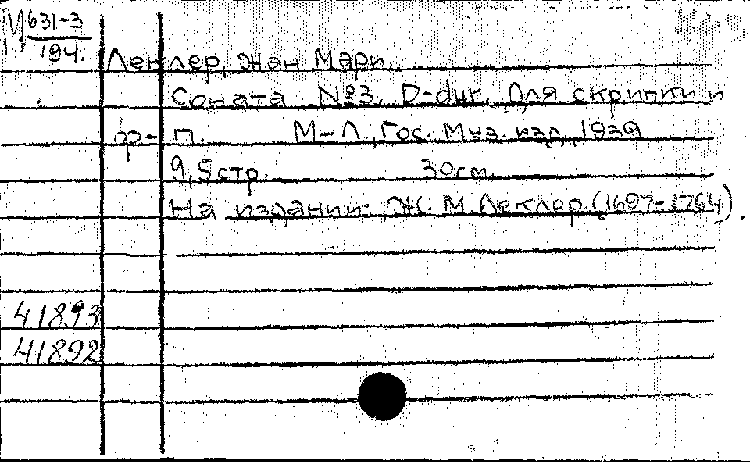 М 631-3
194.
Леклер, Жан Мари.
Соната №3. D-dur. Для скрипки и
ф-п. М-Л., Гос. Муз. изд., 1939
9,5 стр. 30см.
На издании: Ж. М. Леклер. (1697-1764).
41893
41892